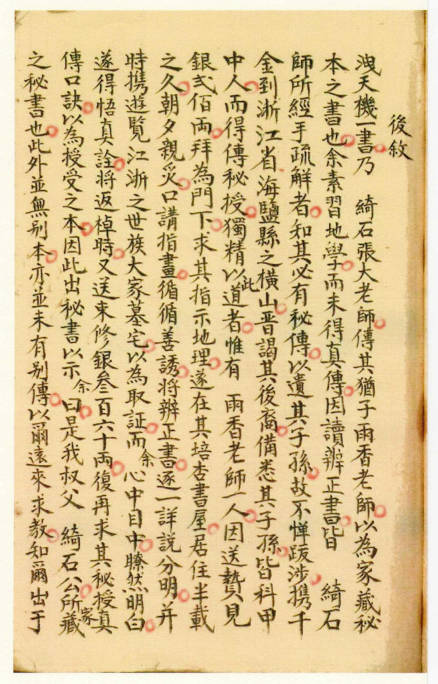 後紋
洩天機一書乃　綺石張大老師傳其猶子雨香老師以為家藏秘
本之書也余素習地學而未得真傳因讀辨正書皆　綺石
師所經手疏解者知其必有秘傳以遺其子孫故不憚跋涉携千
金到浙江省海鹽縣之橫山晋謁其後裔備悉其子孫皆科甲
中人而得傳秘授獨精以此道者惟有　雨香老師一人因送贄見
銀弍佰両拜為門下求其指示地理遂在其培杏書屋居住半載
之久朝夕親炙口講指畫循循善誘將辨正書逐一詳說分明并
時携遊覽江浙之世族大家墓宅以為取証而余心中目中瞭然明白
遂得悟真詮將返棹時又送束修銀叁百六十両復再求其秘授真
傳口訣以為授受之本因此出秘書以示余曰是我叔父　綺石公所藏家
之秘書也此外並無别本亦並未有别傳以爾遠來求教知爾出于